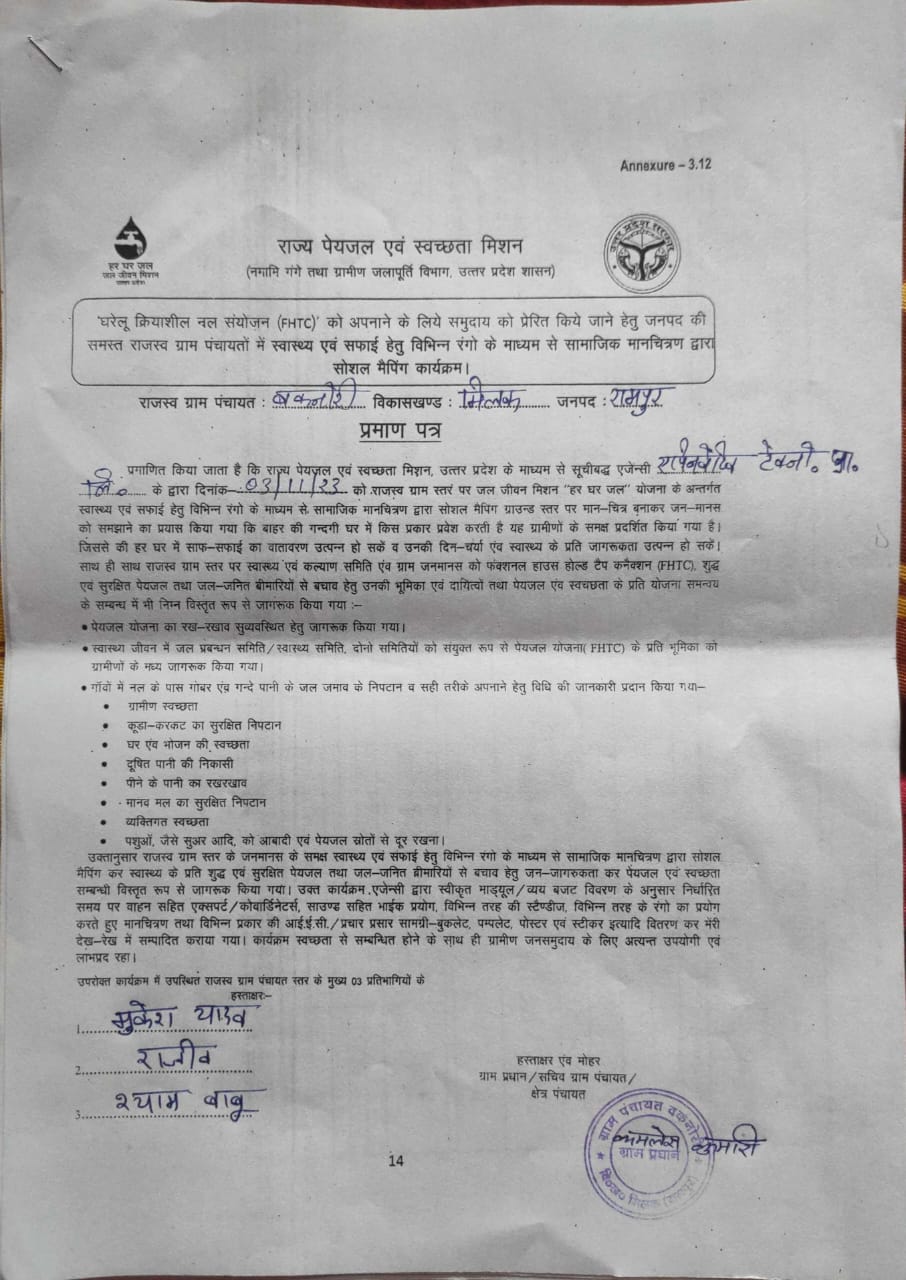 Annexure – 3.12
हर घर जल
जल जीवन मिशन
उत्तर प्रदेश
राज्य पेयजल एवं स्वच्छता मिशन
(नमामि गंगे तथा ग्रामीण जलापूर्ति विभाग, उत्तर प्रदेश शासन)
उत्तर प्रदेश सरकार
'घरेलू क्रियाशील नल संयोजन (FHTC)' को अपनाने के लिये समुदाय को प्रेरित किये जाने हेतु जनपद की
समस्त राजस्व ग्राम पंचायतों में स्वास्थ्य एवं सफाई हेतु विभिन्न रंगो के माध्यम से सामाजिक मानचित्रण द्वारा
सोशल मैपिंग कार्यक्रम।
राजस्व ग्राम पंचायत : बकनोरी विकासखण्ड : मिलक जनपद : रामपुर
प्रमाण पत्र
प्रगाणित किया जाता है कि राज्य पेयजल एवं स्वच्छता मिशन, उत्तर प्रदेश के माध्यम से सूचीबद्ध एजेन्सी टेक्नो. प्रा.
लि. के द्वारा दिनांक 03/11/23 को राजस्व ग्राम स्तर पर जल जीवन मिशन "हर घर जल" योजना के अन्तर्गत
स्वास्थ्य एवं सफाई हेतु विभिन्न रंगो के माध्यम से सामाजिक मानचित्रण द्वारा सोशल मैपिंग ग्राउन्ड स्तर पर मान–चित्र बनाकर जन–मानस
को समझाने का प्रयास किया गया कि बाहर की गन्दगी घर में किस प्रकार प्रवेश करती है यह ग्रामीणों के समक्ष प्रदर्शित किया गया है।
जिससे की हर घर में साफ–सफाई का वातावरण उत्पन्न हो सकें व उनकी दिन–चर्या एंव स्वास्थ्य के प्रति जागरूकता उत्पन्न हो सकें।
साथ ही साथ राजस्व ग्राम स्तर पर स्वास्थ्य एंव कल्याण समिति एंव ग्राम जनमानस को फंक्शनल हाउस होल्ड टैप कनैक्शन (FHTC), शुद्ध
एवं सुरक्षित पेयजल तथा जल–जनित बीमारियों से बचाव हेतु उनकी भूमिका एवं दायित्वि तथा पेयजल एंव स्वचछता के प्रति योजना समन्वय
के सम्बन्ध में भी निम्न विस्तृत रूप से जागरूक किया गया :–
• पेयजल योजना का रख–रखाव सुव्यवस्थित हेतु जागरूक किया गया।
• स्वास्थ्य जीवन में जल प्रबन्धन समिति/स्वास्थ्य समिति, दोनो समितियों को संयुक्त रूप से पेयजल योजना( FHTC) के प्रति भूमिका को
ग्रामीणों के मध्य जागरूक किया गया।
• गॉवों में नल के पास गोबर एंव गन्दे पानी के जल जमाव के निपटान व सही तरीके अपनाने हेतु विधि की जानकारी प्रदान किया गया–
• ग्रामीण स्वच्छता
• कूडा–करकट का सुरक्षित निपटान
• घर एंव भोजन की स्वच्छता
• दूषित पानी की निकासी
• पीने के पानी का रखरखाव
• मानव मल का सुरक्षित निपटान
• व्यक्तिगत स्वच्छता
• पशुओं, जैसे सुअर आदि, को आबादी एवं पेयजल स्रोतों से दूर रखना।
उक्तानुसार राजस्व ग्राम स्तर के जनमानस के समक्ष स्वास्थ्य एवं सफाई हेतु विभिन्न रंगो के माध्यम से सामाजिक मानचित्रण द्वारा सोशल
मैपिंग कर स्वास्थ्य के प्रति शुद्ध एवं सुरक्षित पेयजल तथा जल–जनित बीमारियों से बचाव हेतु जन–जागरुकता कर पेयजल एवं स्वच्छता
सम्बन्धी विस्तृत रूप से जागरूक किया गया। उक्त कार्यक्रम एजेन्सी द्वारा स्वीकृत माड्यूल/व्यय बजट विवरण के अनुसार निर्धारित
समय पर वाहन सहित एक्सपर्ट/कोबार्डिनेटर्स, साउण्ड सहित भाईक प्रयोग, विभिन्न तरह की स्टैण्डीज, विभिन्न तरह के रंगो का प्रयोग
करते हुए मानचित्रण तथा विभिन्न प्रकार की आई.ई.सी./प्रचार प्रसार सामग्री–बुकलेट, पम्पलेट, पोस्टर एवं स्टीकर इत्यादि वितरण कर मेंरी
देख–रेख में सम्पादित कराया गया। कार्यक्रम स्वच्छता से सम्बन्धित होने के साथ ही ग्रामीण जनसमुदाय के लिए अत्यन्त उपयोगी एवं
लाभप्रद रहा।
उपरोक्त कार्यक्रम में उपस्थित राजस्व ग्राम पंचायत स्तर के मुख्य 03 प्रतिभागियों के
हस्ताक्षरः–
1. मुकेश यादव
2. राजीव
3. श्याम बाबू
हस्ताक्षर एंव मोहर
ग्राम प्रधान/सचिव ग्राम पंचायत/
क्षेत्र पंचायत
ग्राम पंचायत वकनोरी
कमलेस कुमारी
ग्राम प्रधान
वि०ख० मिलक (रामपुर)
14